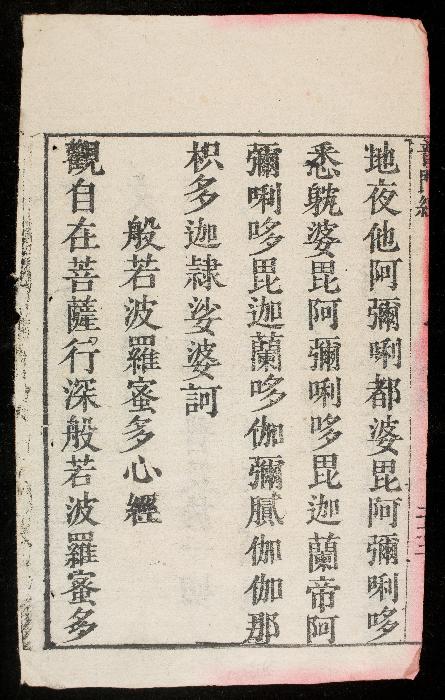 地夜他阿彌唎都婆毘阿彌唎哆
悉躭婆毘阿彌唎哆毘迦蘭帝阿
彌唎哆毘迦蘭哆伽彌膩伽伽那
枳多迦隷娑婆訶
般若波羅蜜多心經
觀自在菩薩行深般若波羅蜜多